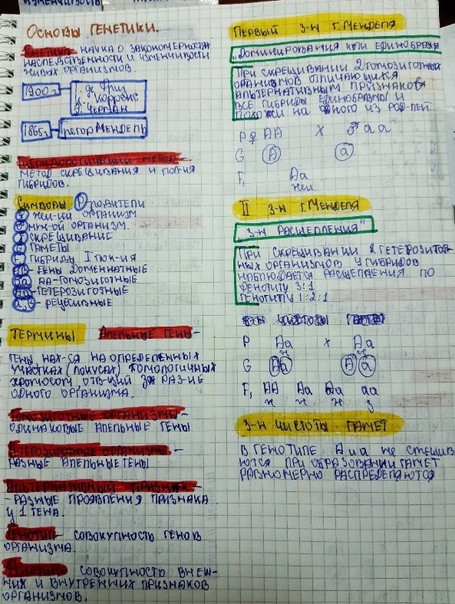 Основы генетики.
Генетика наука о закономерностях
наследственности и изменчивости
живых организмов.
1900г.
Г. де Фриз
К. Корренс
Э. Чермак
1865г.
Грегор Мендель
Гибридологический метод
метод скрещивания и полия
гибридов.
Символы. Р родители
жен-ий организм
муж-ой организм.
скрещивание
гаметы
гибриды I пок-ия
гены доменнатные
АА-гомозиготные
гетерозиготные
рецесивные
Термины Алельные гены-
гены, нах-ся на определенных
участках (локусах) гомологичных
хромосом отв-щий за раз-ие
одного организма.
Гомозиготные организмы-
одинаковые алельные гены
Гетерозиготные организмы-
разные алельные гены
Альтернативный признак-
-разные проявления признака
у 1 гена.
Генотип- совокупность генов
организма.
Фенотип- совокупность внеш-
них и внутренних признаков
организмов.
Первый з-н Г. Менделя
„Доминирования или единобразия
При скрещивании 2 гомозиготных
организмов отличающихся
альтернативным признаков
все гибриды единобразны и
похожи на одного из род-лей.
Р ♀ АА х ♂ аа
G А а
F₁ Аа
II з-н Г. Менделя
„З-н расщепления"
При скрещивании 2 гетерозигот-
ных организмов у гибридов
наблюдается расщепления по
феноти 3:1
генотипу 1:2:1
Р Аа х Аа
G А а А а
F₁ АА Аа Аа аа
ж ж ж з
З-н чистоты гамет
В генотипе А и а не смешив
аются при образовании гамет
равномерно распределяются